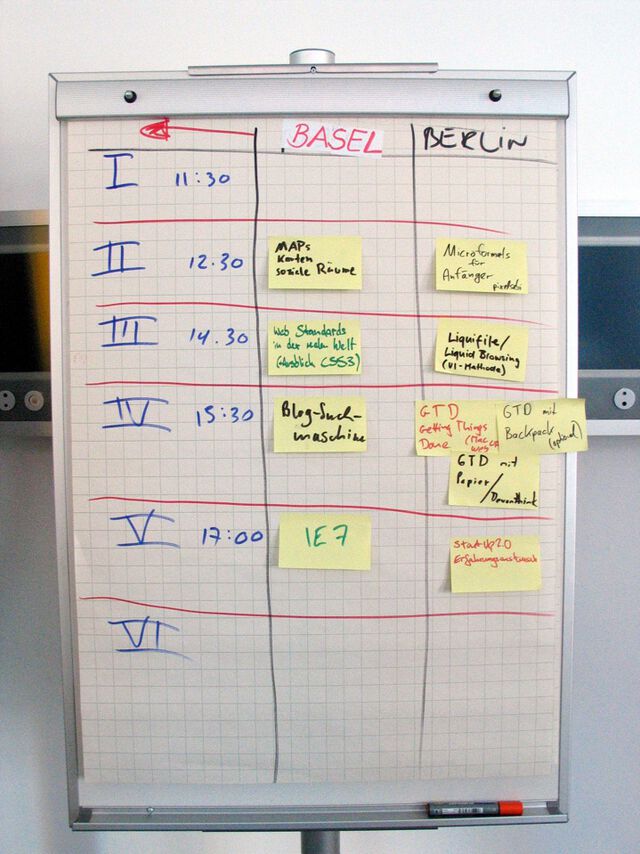 BASEL
BERLIN
I 11:30
II 12.30
MAPs
Karten
soziale Räume
Microformels
für
Anfänger
III 14.30
Web Standards
in der realen Welt
(Ausblick CSS3)
Liquifile/
Liquid Browsing
(UI-Methode)
IV 15:30
Blog-Such-
maschine
GTD
Getting Things
Done (Mac
GTD mit
Backpack
(optional)
GTD mit
Papier/
Devonthink
V 17:00
IE7
StartUp 2.0
Erfahrungsaustausch
VI